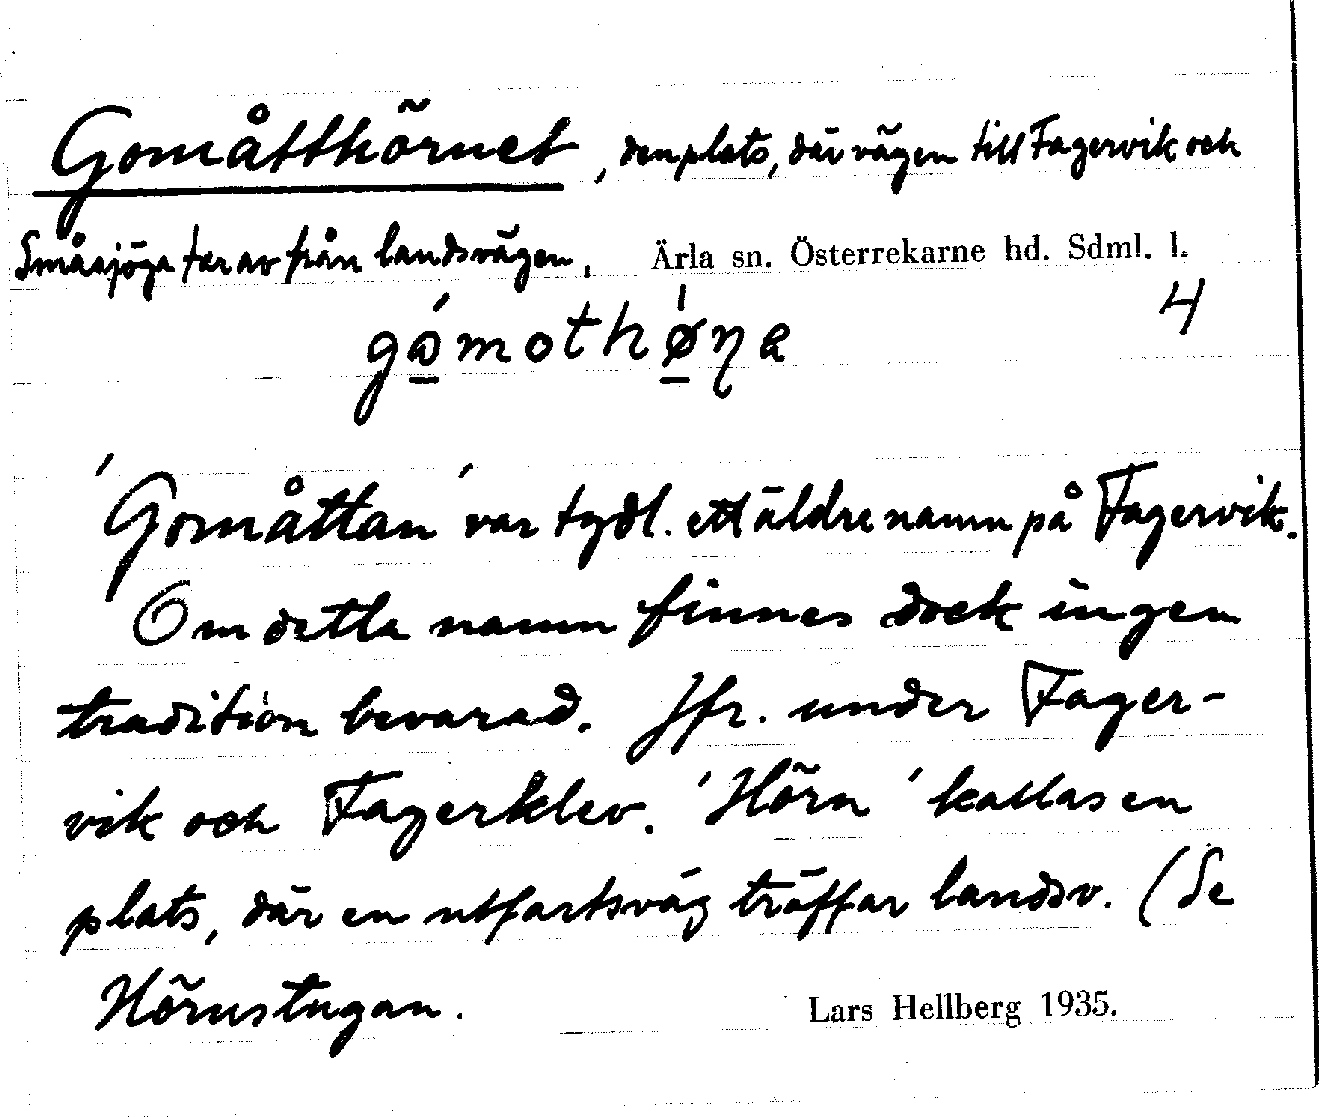 Gomåtthörnet, den plats, där vägen till Fagervik och
Småsjöga tar av från landsvägen. Ärla sn. Österrekarne hd. Sdml. l.
4
'Gomåttan' var tydl. ett äldre namn på Fagervik.
Om detta namn finnes dock ingen
tradition bevarad. Jfr. under Fager-
vik och Fagerklev. 'Hörn' kallas en
plats, där en utfartsväg träffar landsv. (Se
Hörnstugan.
Lars Hellberg 1935.